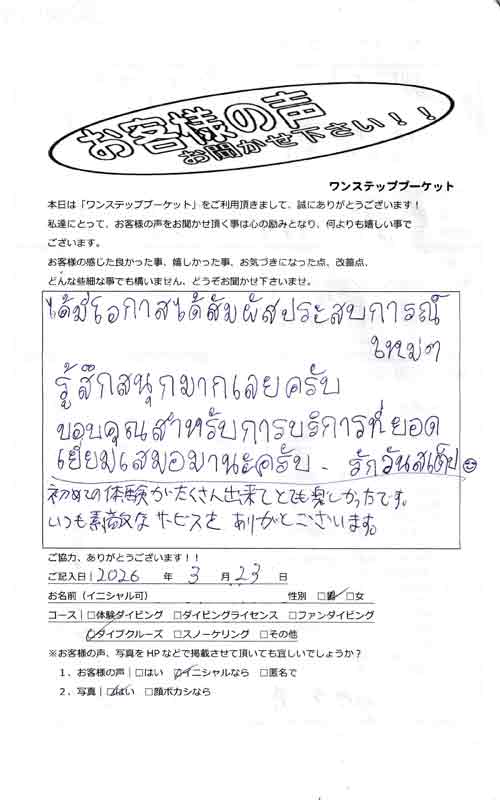 お客様の声
お聞かせ下さい！！
ワンステッププーケット
本日は「ワンステッププーケット」をご利用頂きまして、誠にありがとうございます！
私達にとって、お客様の声をお聞かせ頂く事は心の励みとなり、何よりも嬉しい事で
ございます。
お客様の感じた良かった事、嬉しかった事、お気づきになった点、改善点、
どんな些細な事でも構いません、どうぞお聞かせ下さいませ。
ได้มีโอกาสได้สัมผัสประสบการณ์
ใหม่ๆ
รู้สึกสนุกมากเลยครับ
ขอบคุณสำหรับการบริการที่ยอด
เยี่ยมเสมอมานะครับ - รักวันสเต็ป
初めての体験がたくさん出来てとても楽しかったです。
いつも素敵なサービスを ありがとございます。
ご協力、ありがとうございます！！
ご記入日 | 2026 年 3 月 23 日
お名前（イニシャル可） 性別 □男 □女
コース | □体験ダイビング □ダイビングライセンス □ファンダイビング
□ダイブクルーズ □スノーケリング □その他
※お客様の声、写真をＨＰなどで掲載させて頂いても宜しいでしょうか？
１．お客様の声 | □はい □イニシャルなら □匿名で
２．写真 | □はい □顔ボカシなら